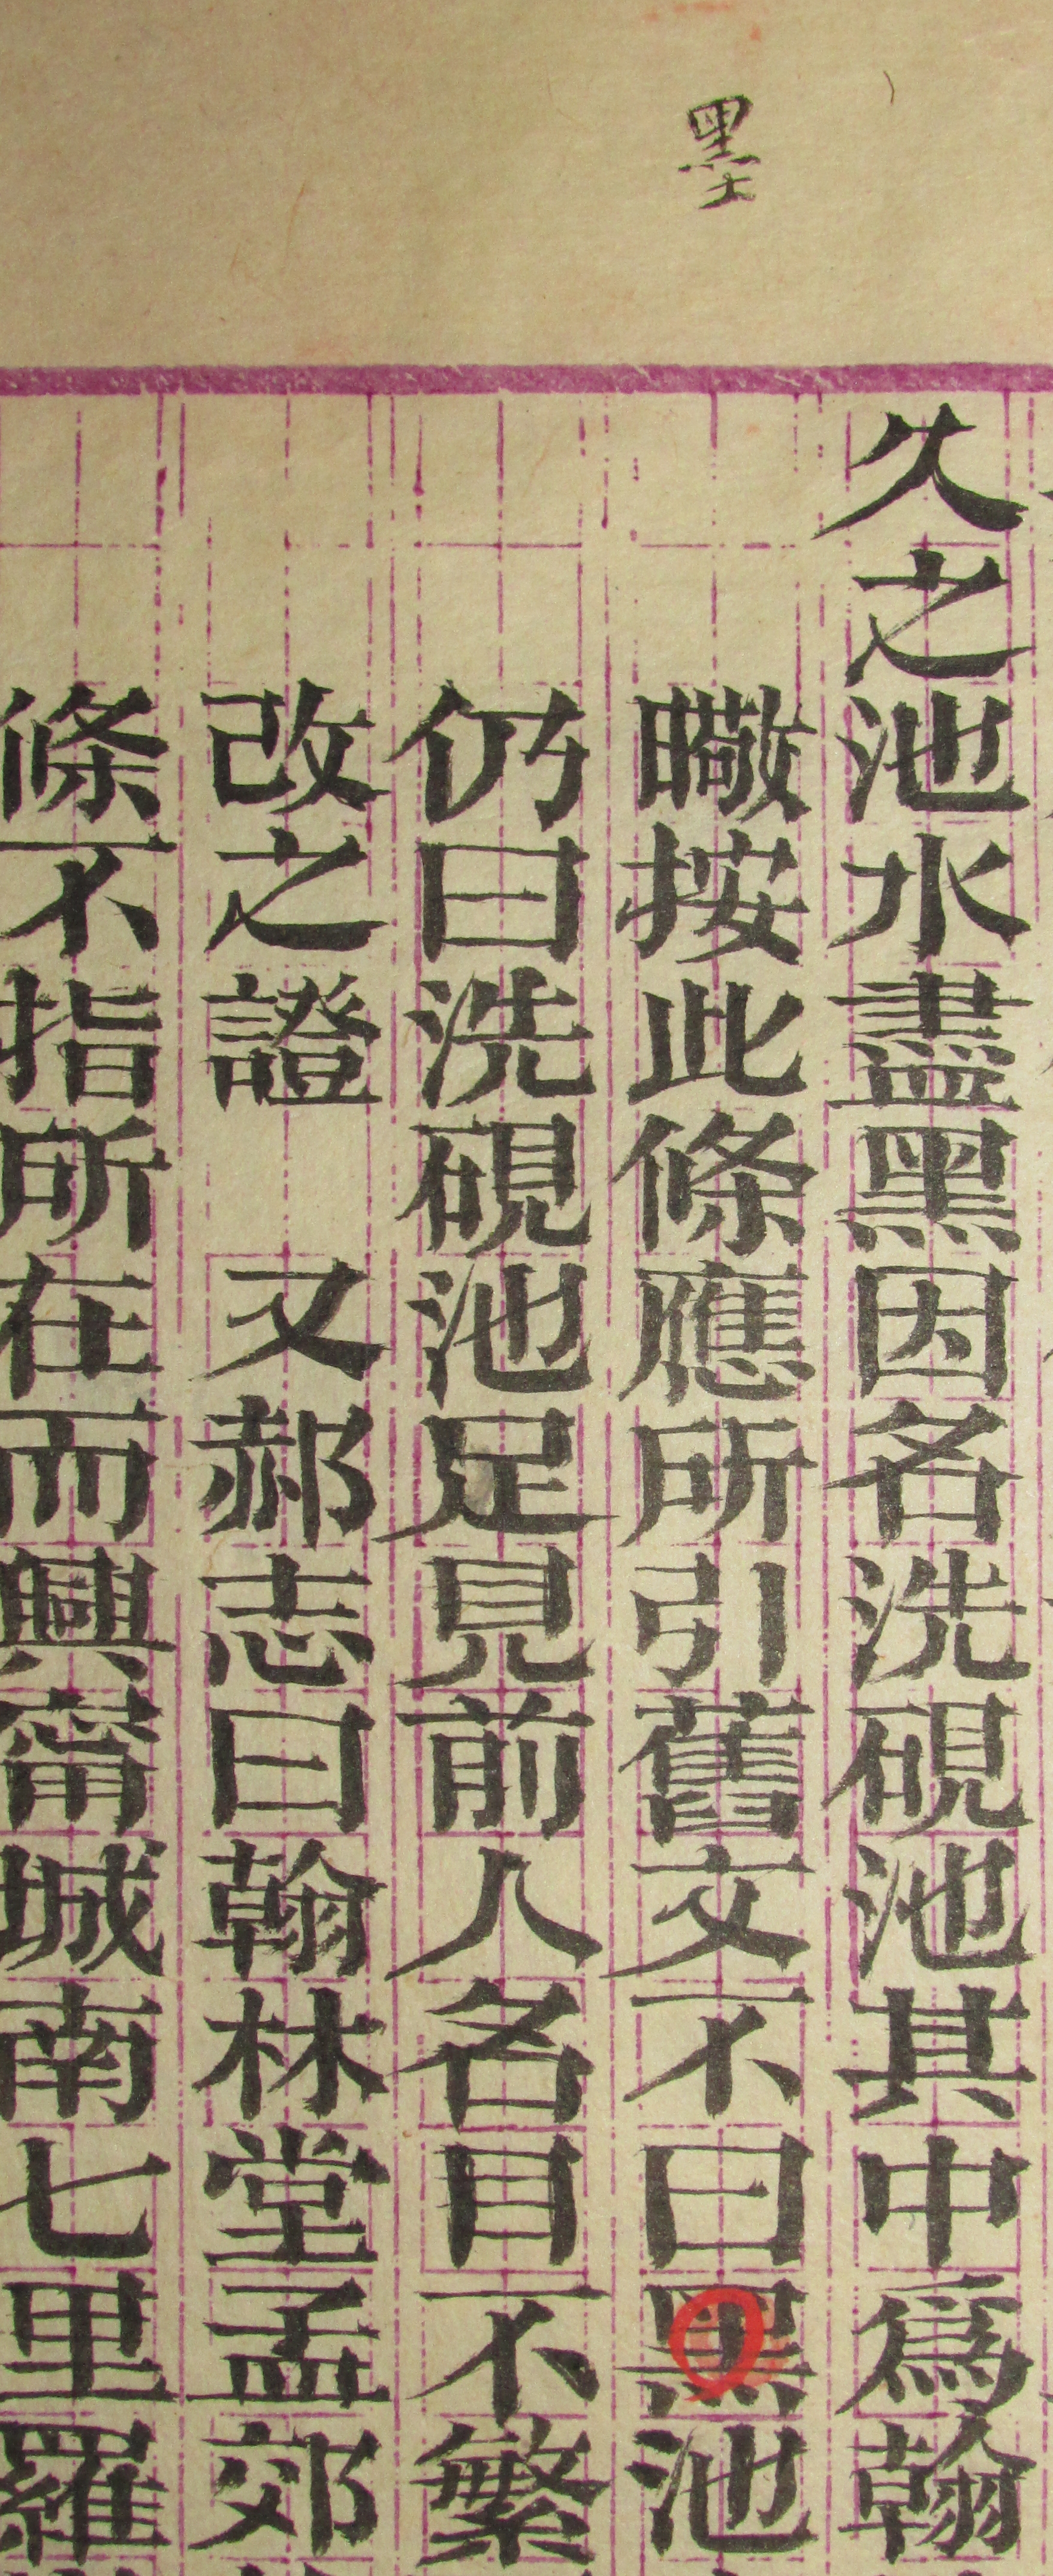 墨
久之池水盡黑因名洗硯池其中爲翰
暾按此條應所引舊文不曰黑池
仍曰洗硯池足見前人名目不繁
改之證　又郝志曰翰林堂孟郊
條不指所在而興甯城南七里羅